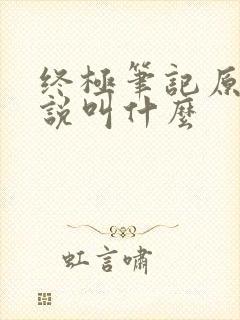 终極筆記原
說叫什麼
虹言嘯